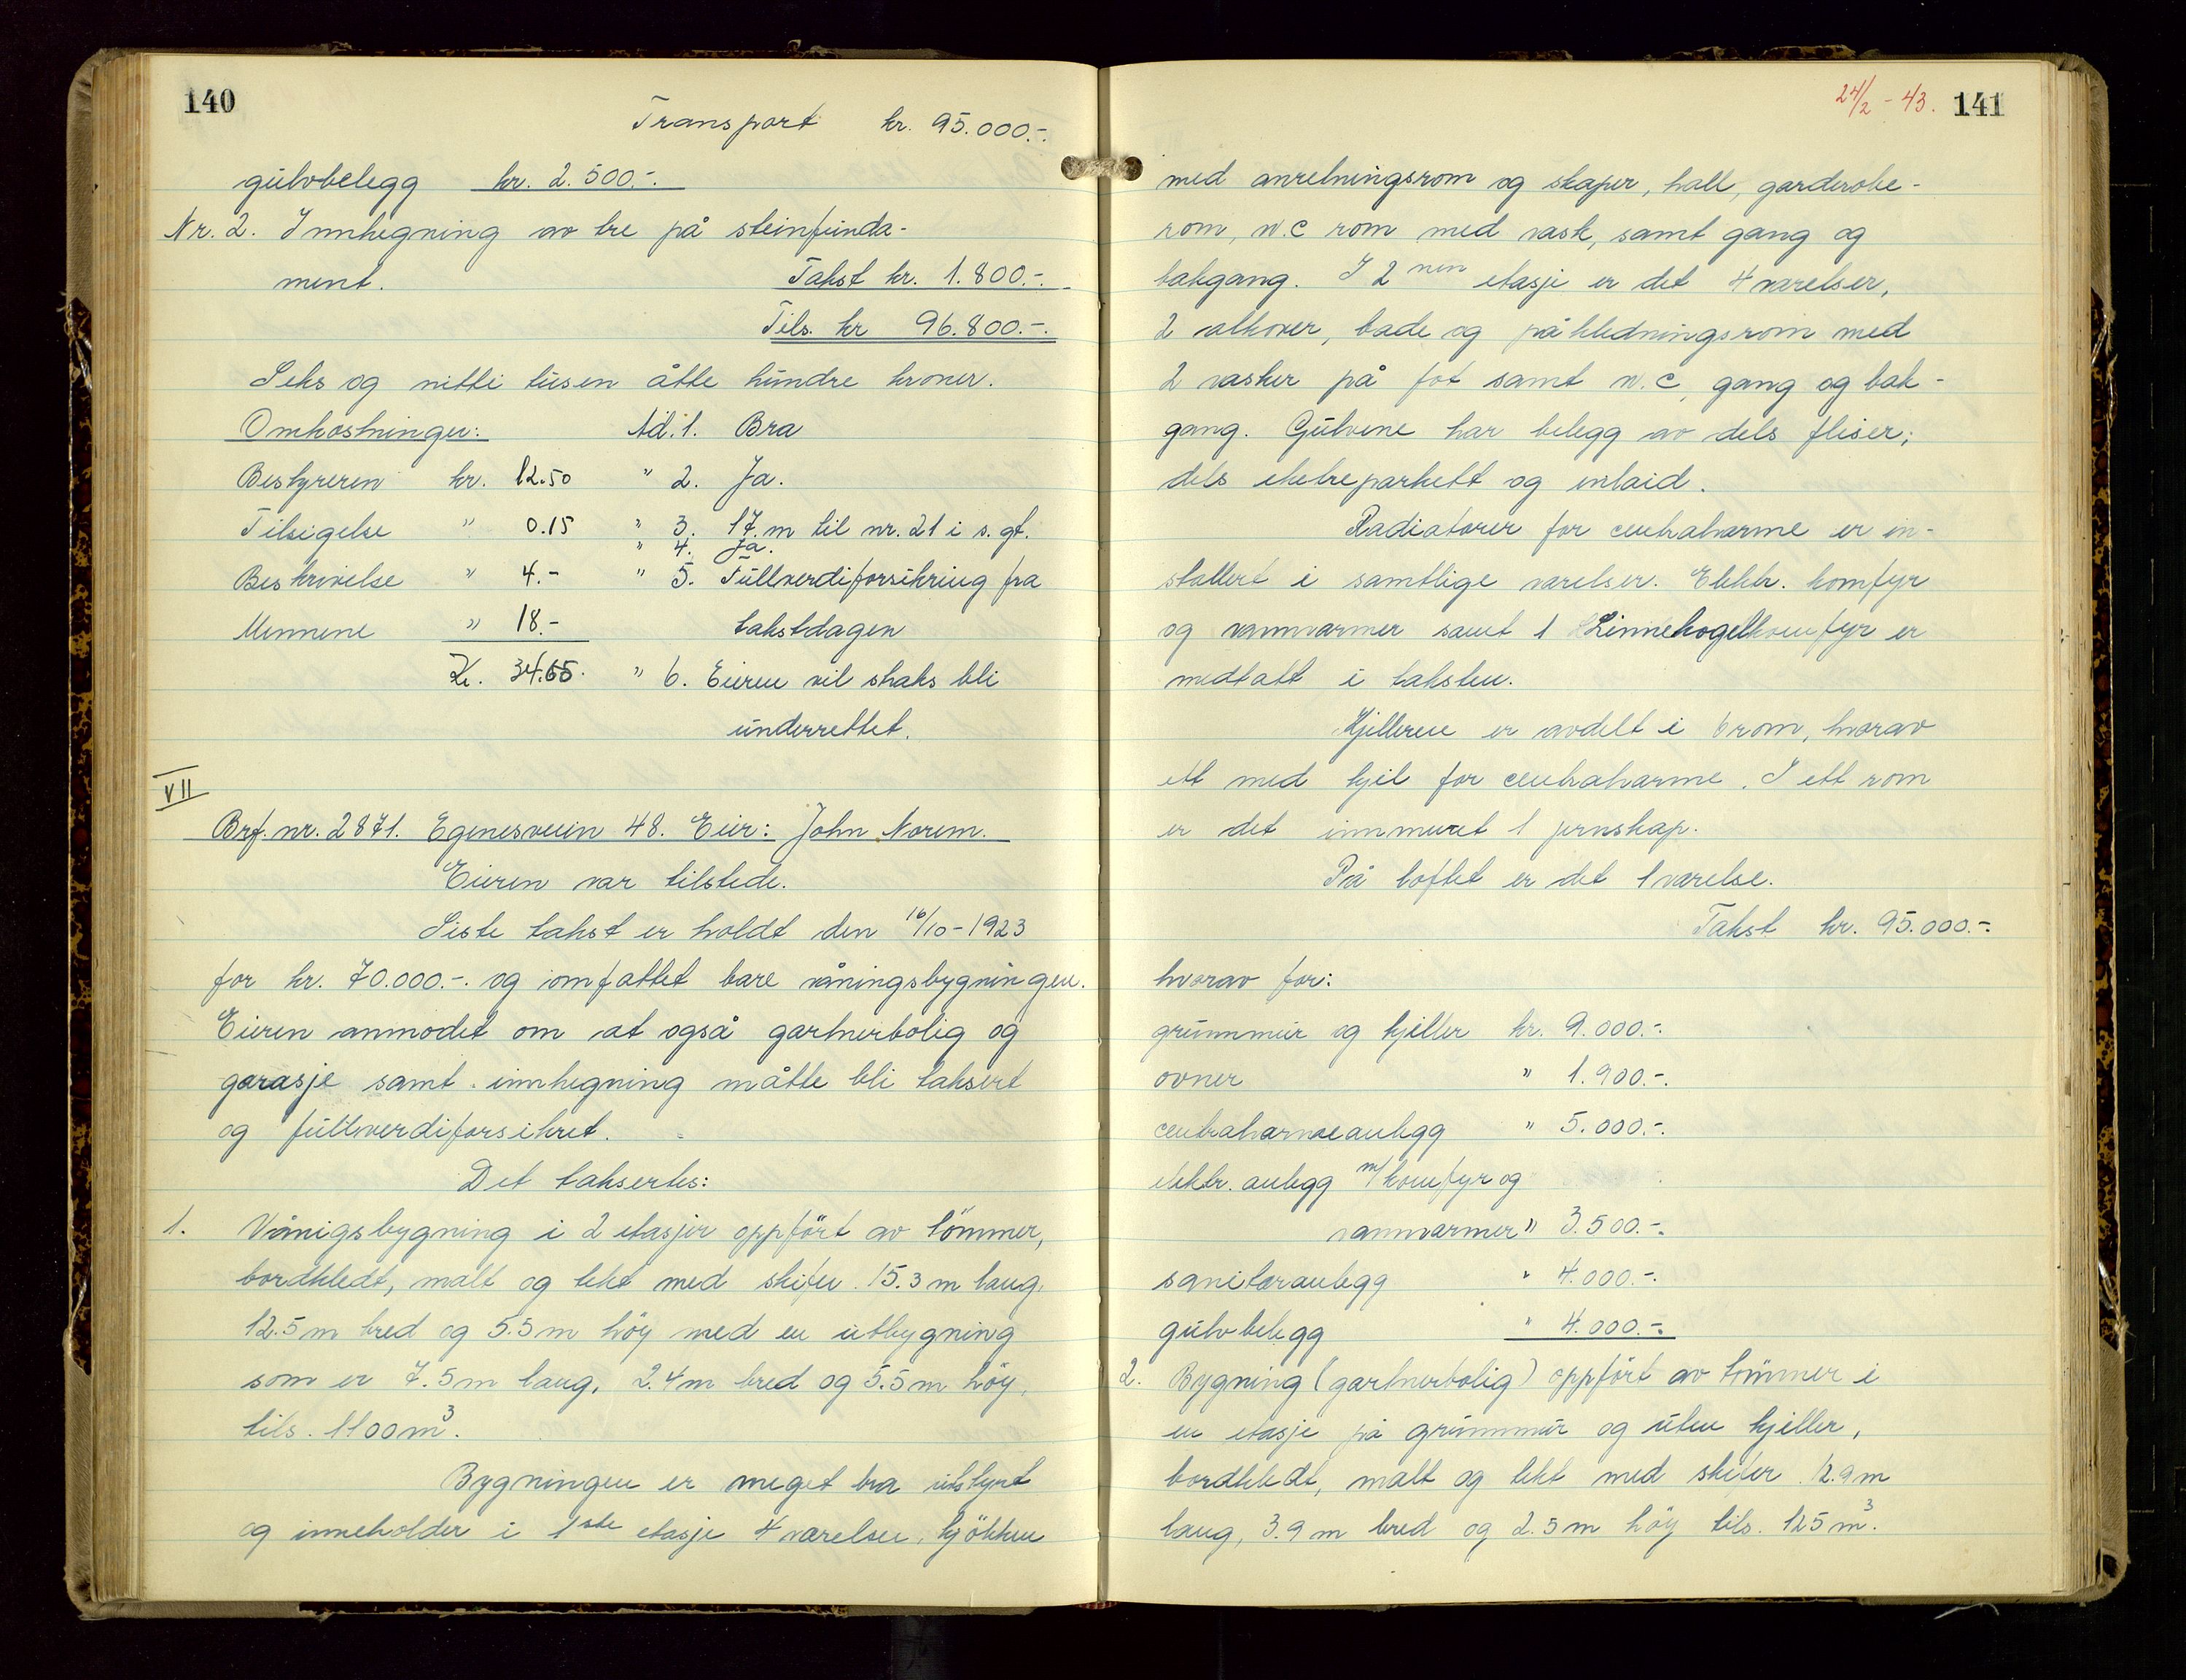 140
Transport kr. 95.000.-.
gulvbelegg kr. 2.500.-.
Nr. 2. Innhegning av tre på steinfunda-
ment. Takst kr. 1.800.-.
Tils. kr 96.800.-.
Seks og nitti tusen åtte hundre kroner.
Omkostninger: Ad. 1. Bra
Bestyreren kr. 12.50 " 2. Ja.
Tilsigelse " 0.15 " 3. 17.m til nr. 21 i s. gt.
" 4. Ja.
Beskrivelse " 4.- " 5. Fullverdiforsikring fra
Mennene " 18.- takstdagen
Kr. 34.65. " 6. Eieren vil straks bli
underrettet.
VII
Brf. nr. 2871. Egenesveien 48. Eier: John Norem.
Eieren var tilstede.
Siste takst er holdt den 16/10-1923
for kr. 70.000.-. og omfattet bare våningsbygningen.
Eieren anmodet om at også gartnerbolig og
garasje samt innhegning måtte bli taksert
og fullverdiforsikret.
Det taksertes:
1. Vånigsbygning i 2 etasjer oppført av tömmer,
bordkledt, malt og tekt med skifer. 15.3 m lang,
12.5 m bred og 5.5 m höy med en utbygning
som er 7.5 m lang, 2.4 m bred og 5.5 m höy,
tils. 1100 m³.
Bygningen er meget bra utstyrt
og inneholder i 1ste etasje 4 værelser, kjökken
24/2 - 43. 141
med anretningsrom og skaper, hall, garderobe-
rom, w.c rom med vask, samt gang og
bakgang. I 2nen etasje er det 4 værelser,
2 alkover, bade og påkledningsrom med
2 vasker på fot samt w.c, gang og bak-
gang. Gulvene har belegg av dels fliser,
dels eketreparkett og inlaid.
Radiatorer for centralvarme er in-
stallert i samtlige værelser. Elektr. komfyr
og vannvarmer samt 1 Linnekogelkomfyr er
medtatt i taksten.
Kjelleren er avdelt i 6 rom, hvorav
ett med kjel for centralvarme. I ett rom
er det innmuret 1 jernskap.
På loftet er det 1 værelse.
Takst kr. 95.000.-.
hvorav for:
grunnmur og kjeller kr. 9.000.-.
ovner " 1.900.-.
centralvarmeanlegg " 5.000.-.
elektr. anlegg m/komfyr og
vannvarmer " 3.500.-.
sanitæranlegg " 4.000.-.
gulvbelegg " 4.000.-.
2. Bygning (gartnerbolig) oppfört av tömmer i
en etasje på grunnmur og uten kjeller,
bordkledt, malt og tekt med skifer. 12.9 m
lang, 3.9 m bred og 2.5 m höy tils. 125 m³.